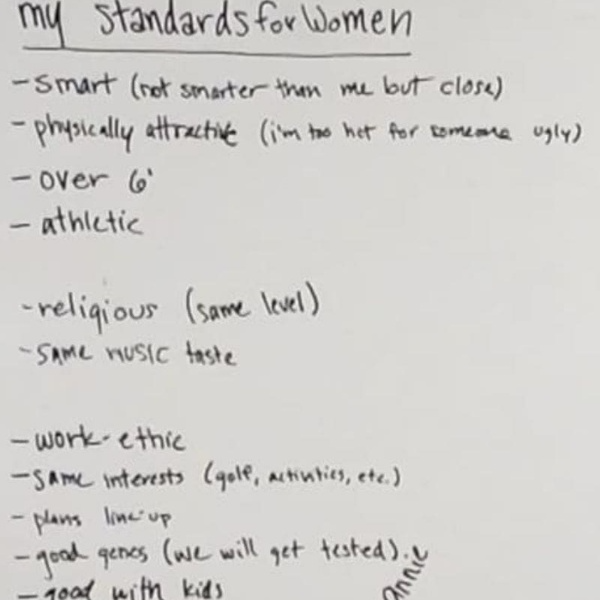 my standards for women
- smart (not smarter than me but close)
- physically attractive (i'm too hot for someone ugly)
- over 6'
- athletic
- religious (same level)
- same music taste
- work-ethic
- same interests (golf, activities, etc.)
- plans line-up
- good genes (we will get tested).
- good with kids
annie